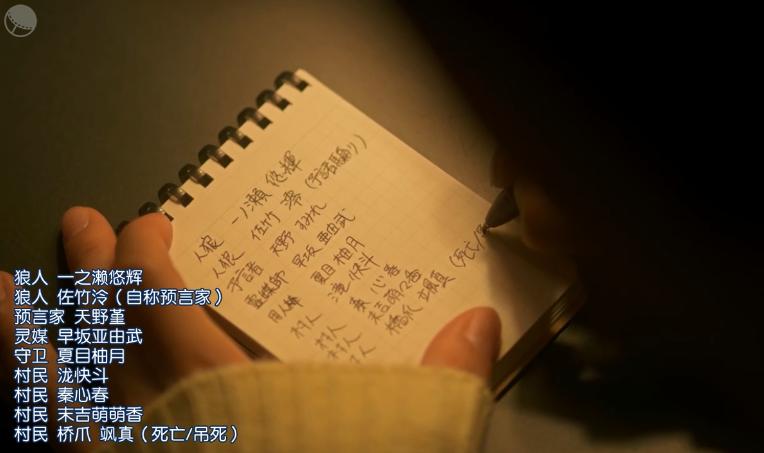 人狼 一ノ瀬 悠輝
人狼 佐竹 澪 (予言者騙り)
予言者 天野 すみれ
霊媒師 早坂 亜由武
用人棒 夏目 柚月
村人 滝 快斗
村人 秦 心春
村人 末吉 萌々香
村人 橋爪 颯真 (死亡/
狼人 一之濑悠辉
狼人 佐竹泠（自称预言家）
预言家 天野堇
灵媒 早坂亚由武
守卫 夏目柚月
村民 泷快斗
村民 秦心春
村民 末吉萌萌香
村民 桥爪 飒真（死亡/吊死）